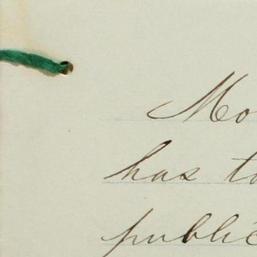 Mo
has to
public